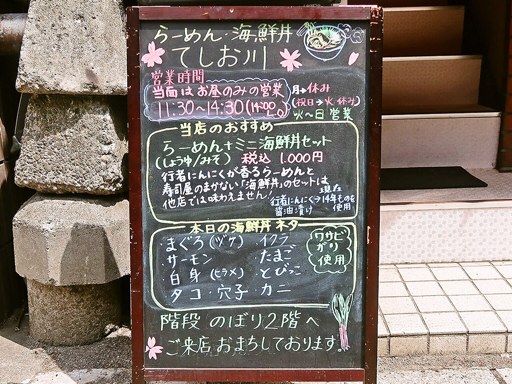 らーめん・海鮮丼
てしお川
営業時間
当面はお昼のみの営業
11:30〜14:30(14:00L.O)
月→休み
(祝日→火休み)
火〜日営業
当店のおすすめ
らーめん+ミニ海鮮丼セット
(しょうゆ/みそ) 税込 1,000円
行者にんにくが香るらーめんと
寿司屋のまかない「海鮮丼」のセットは
他店では味わえません!
行者にんにく→14年ものを
醤油漬け
現在
使用
本日の海鮮丼ネタ
・まぐろ(ヅケ)・イクラ
・サーモン ・たまご
・白身(ヒラメ)・とびっこ
・タコ・穴子・カニ
ワサビ
ガリ
使用
階段 のぼり2階へ
ご来店おまちしております。